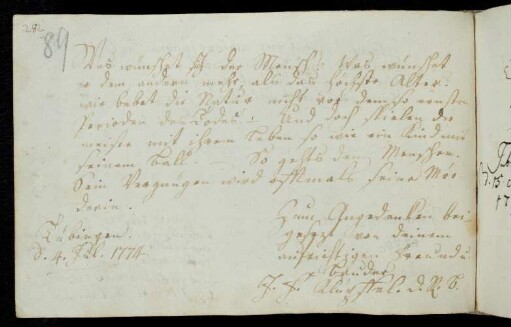 292
89
Was wünschet sich der Mensch: Was wünschet
er dem andern mehr, als das höchste Alter:
wie bebet die Natur nicht vor dem so ernsten
Perioden des Todes. Und doch spielen die
meisten mit ihrem Leben so wie ein Kind mit
seinem Ball. — So gehts den Menschen.
Sein Vergnügen wird oftmals seine Mör
derin.
Tübingen.
d. 4. Jul. 1774.
Zum Angedenken bei
gesezt von deinem
aufrichtigen Freund u
Bruder
J. F.
d. 15